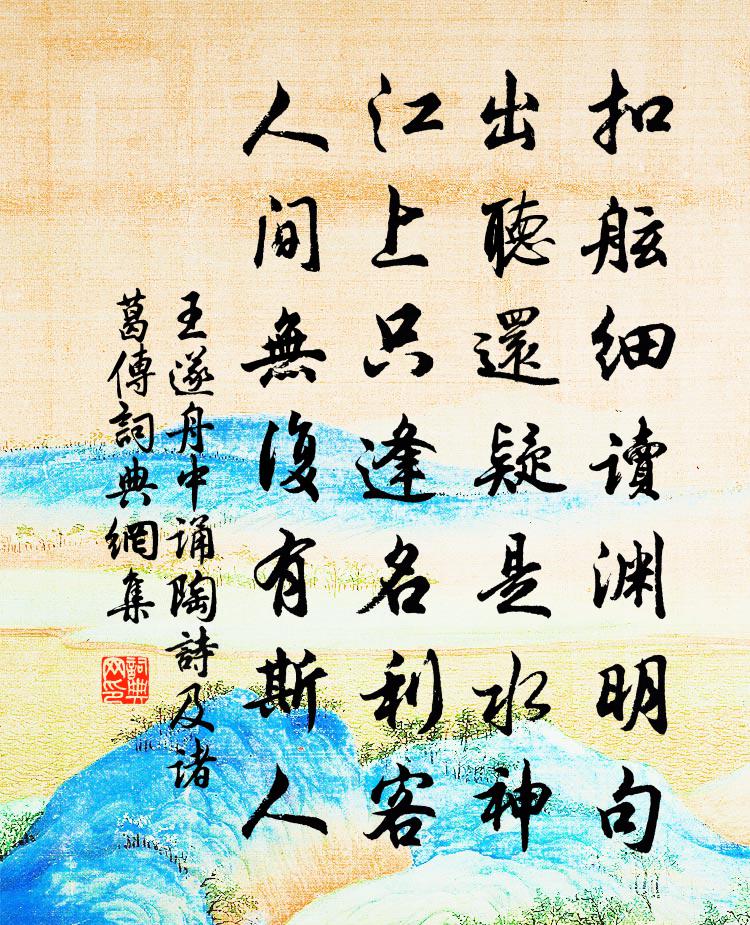 扣舷细讀渊明句
出聽還疑是水神
江上只逢名利客
人间無復有斯人
王遂舟中诵陶詩及诸
葛傳詞典網集
詞典網印